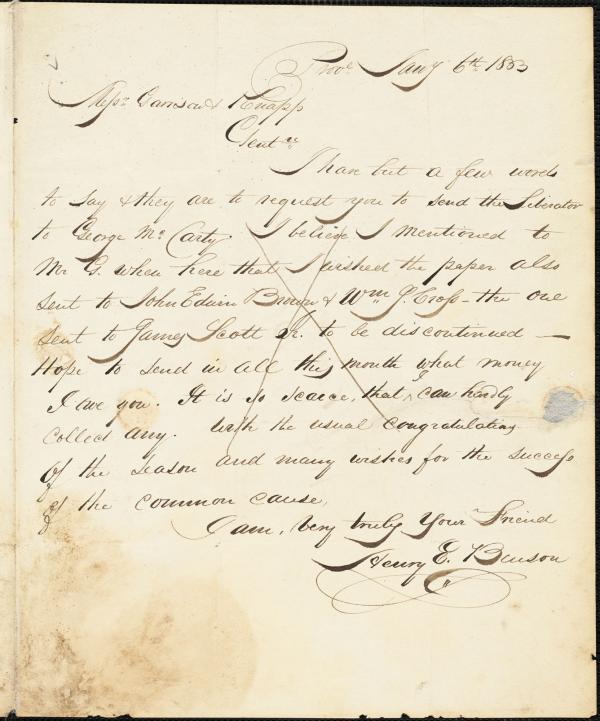 Prov. Jany 6th. 1833
Messrs. Garrison & Knapp
Gentn.
I have but a few words
to say & they are to request you to send the Liberator
to George Mc Carty. I believe I mentioned to
Mr G. when here that I wished the paper also
sent to John Edwin Brown & Wm J. Cross – the one
sent to James Scott Jr. to be discontinued —
Hope to send in all this month what money
I owe you. It is so scarce, that I can hardly
collect any. With the usual congratulations
of the season and many wishes for the success
of the common cause,
I am, Very truly Your Friend
Henry E. Benson